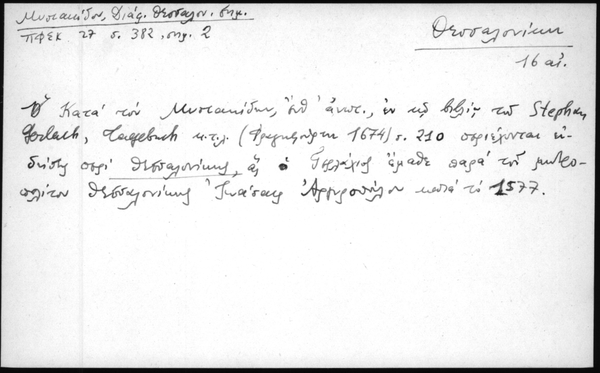 Μυστακίδου, Διάφ. Θεσσαλον. σημ.
ΠΦΣΚ 27 σ. 382, σημ. 2
Θεσσαλονίκη
16 αἰ.
Κατά τόν Μυστακίδην, ἔνθ' ἀνωτ., ἐν τῷ βιβλίῳ τοῦ Stephan
Gerlach, Tagebuch κ.τ.λ. (Φραγκφούρτη 1674) σ. 210 περιέχονται εἰ-
δήσεις περί Θεσσαλονίκης, ἅς ὁ Γερλάχιος ἔμαθε παρά τοῦ μητρο-
πολίτου Θεσσαλονίκης Ἰωάσαφ Ἀργυροπούλου κατά τό 1577.